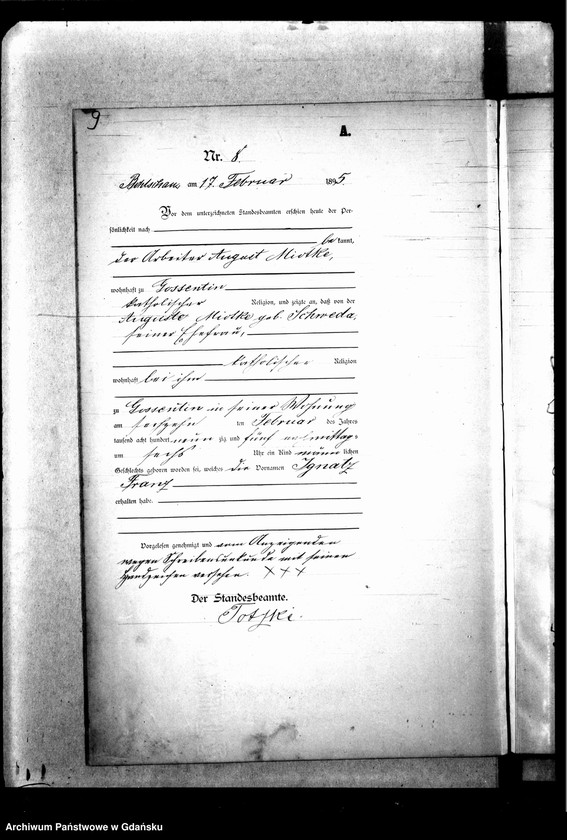 9
A.
Nr. 8.
Bohlschau am 17. Februar 1895
Vor dem unterzeichneten Standesbeamten erschien heute der Per-
sönlichkeit nach
bekannt,
der Arbeiter August Miotke,
wohnhaft zu Gossentin
katholischer Religion, und zeigte an, daß von der
Auguste Miotke geb. Schweda,
seiner Ehefrau,
katholischer Religion
wohnhaft bei ihm
zu Gossentin in seiner Wohnung
am sechzehn ten Februar des Jahres
tausend acht hundert neun zig und fünf nachmittags
um sechs Uhr ein Kind männlichen
Geschlechts geboren worden sei, welches die Vornamen Ignatz
Franz
erhalten habe.
Vorgelesen, genehmigt und vom Anzeigenden
wegen Schreibensunkunde mit seinen
Handzeichen versehen. XXX
Der Standesbeamte.
Totzki.
Archiwum Państwowe w Gdańsku